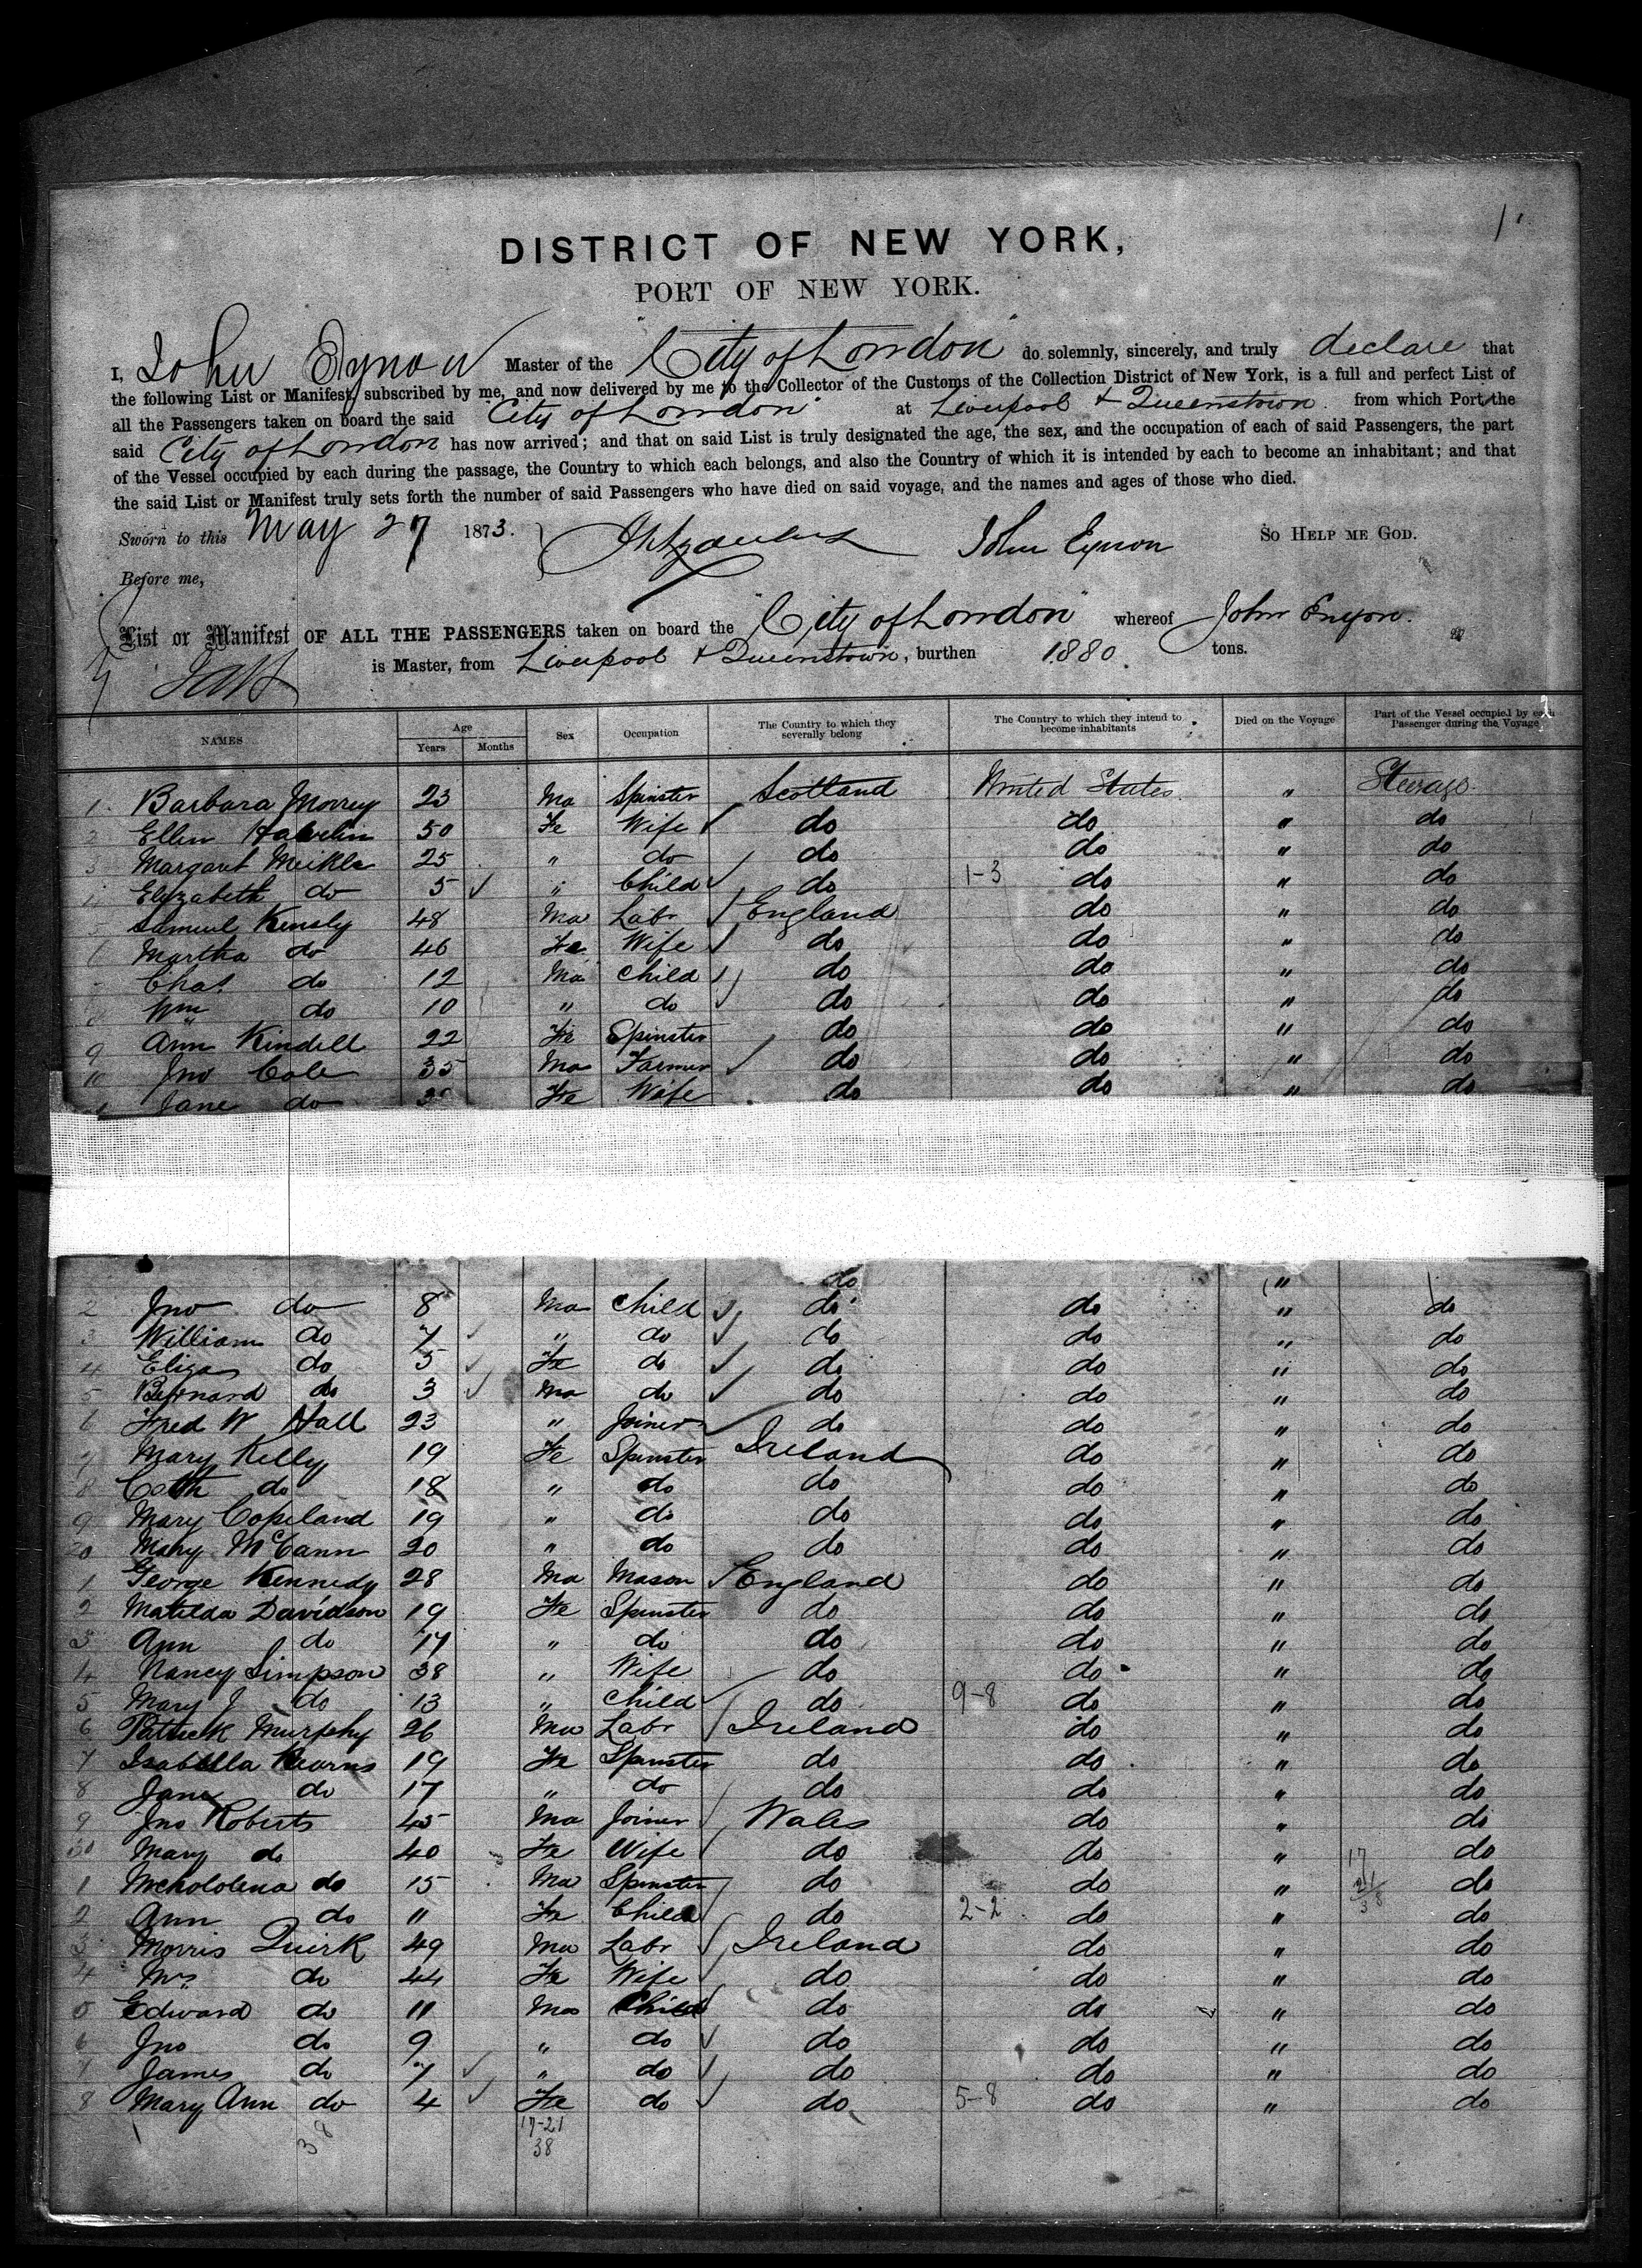 1'
DISTRICT OF NEW YORK,
PORT OF NEW YORK.
I, John Eynon Master of the "City of London" do solemnly, sincerely, and truly declare that
the following List or Manifest, subscribed by me, and now delivered by me to the Collector of the Customs of the Collection District of New York, is a full and perfect List of
all the Passengers taken on board the said "City of London" at Liverpool & Queenstown from which Port the
said City of London has now arrived; and that on said List is truly designated the age, the sex, and the occupation of each of said Passengers, the part
of the Vessel occupied by each during the passage, the Country to which each belongs, and also the Country of which it is intended by each to become an inhabitant; and that
the said List or Manifest truly sets forth the number of said Passengers who have died on said voyage, and the names and ages of those who died.
Sworn to this May 27 1873. John Eynon So Help me God.
Before me,
List or Manifest OF ALL THE PASSENGERS taken on board the "City of London" whereof John Enyon.
is Master, from Liverpool & Queenstown, burthen 1880. tons.
NAMES Age Years Months Sex Occupation The Country to which they severally belong The Country to which they intend to become inhabitants Died on the Voyage Part of the Vessel occupied by each Passenger during the Voyage
1 Barbara Morrey 23 Ma Spinster Scotland United States " Steerage
2 Ellen 50 Fe Wife do do " do
3 Margaret Meikle 25 " do do do " do
4 Elizabeth do 5 " Child do 1-3 do " do
5 Samuel Kensly 48 Ma Labr England do " do
6 Martha do 46 Fe Wife do do " do
7 Chas do 12 Ma Child do do " do
8 Wm do 10 " do do do " do
9 Ann Kindell 22 Fe Spinster do do " do
10 Jno Cole 35 Ma Farmer do do " do
Jane do Fe Wife do do " do
do "
2 Jno do 8 Ma Child do do " do
3 William do 7 " do do do " do
4 Eliza do 5 Fe do do do " do
5 Bernard do 3 Ma do do do " do
6 Fred W Hall 23 " Joiner do do " do
7 Mary Kelly 19 Fe Spinster Ireland do " do
8 Cath do 18 " do do do " do
9 Mary Copeland 19 " do do do " do
20 Mary McCann 20 " do do do " do
1 George Kennedy 28 Ma Mason England do " do
2 Matilda Davidson 19 Fe Spinster do do " do
3 Ann do 17 " do do do " do
4 Nancy Simpson 38 " Wife do do " do
5 Mary J do 13 " Child do 9-8 do " do
6 Patrick Murphy 26 Ma Labr Ireland do " do
7 Isabella Kearns 19 Fe Spinster do do " do
8 Jane do 17 " do do do " do
9 Jno Roberts 45 Ma Joiner Wales do " do
30 Mary do 40 Fe Wife do do " do
1 Nichololena do 15 Ma Spinster do do " 17 21 38 do
2 Ann do 11 Fe Child do 2-2 do " do
3 Morris Quirk 49 Ma Labr Ireland do " do
4 Mrs do 44 Fe Wife do do " do
5 Edward do 11 Ma Child do do " do
6 Jno do 9 " do do do " do
7 James do 7 " do do do " do
8 Mary Ann do 4 Fe do do 5-8 do " do
38 17-21
38